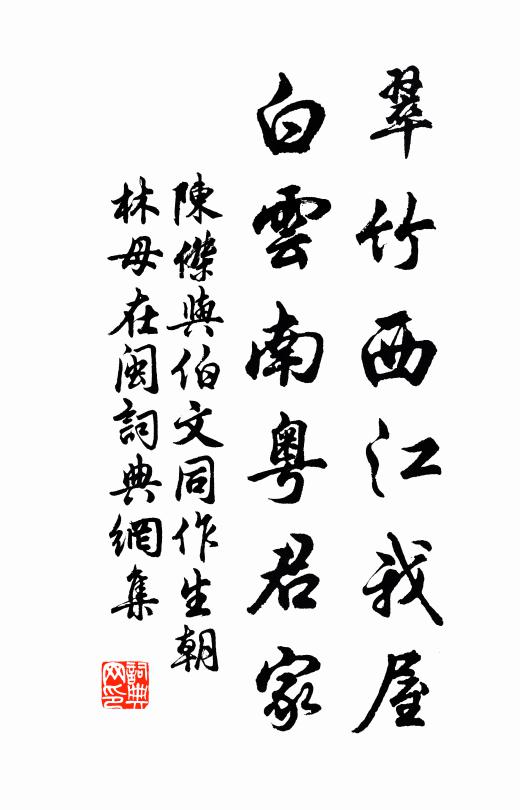 翠竹西江我屋
白雲南粵君家
陳傑與伯文同作生朝
林母在閩詞典網集
詞典
网印